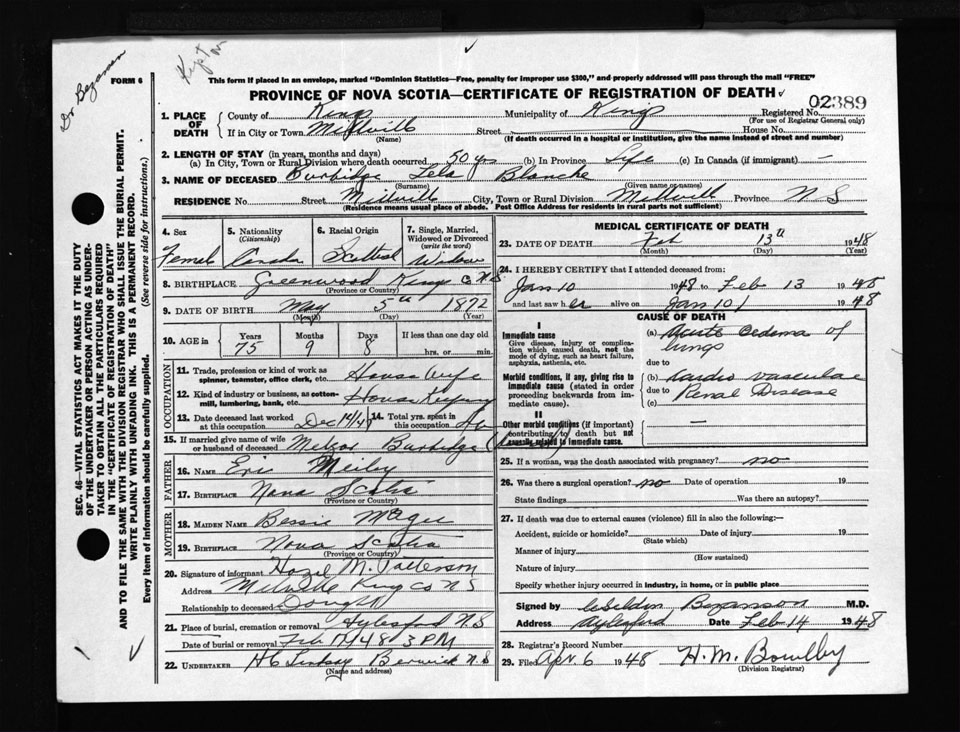 Dr Bezanson
FORM 6
Kept
This form if placed in an envelope, marked "Dominion Statistics—Free, penalty for improper use $300," and properly addressed will pass through the mail "FREE"
PROVINCE OF NOVA SCOTIA—CERTIFICATE OF REGISTRATION OF DEATH
02389
1. PLACE OF DEATH
County of Kings Municipality of Kings Registered No.
(For use of Registrar General only)
If in City or Town Millville Street House No.
(Name) (If death occurred in a hospital or institution, give the name instead of street and number)
2. LENGTH OF STAY (in years, months and days)
(a) In City, Town or Rural Division where death occurred 50 yrs (b) In Province Life (c) In Canada (if immigrant) —
3. NAME OF DECEASED Burbidge Lela Blanche
(Surname) (Given name or names)
RESIDENCE No. Street Millville City, Town or Rural Division Millville Province N S
(Residence means usual place of abode. Post Office Address for residents in rural parts not sufficient)
4. Sex Female
5. Nationality (Citizenship) Canada
6. Racial Origin Scottish
7. Single, Married, Widowed or Divorced (write the word) Widow
8. BIRTHPLACE Greenwood Kings Co N S
9. DATE OF BIRTH May 5th 1872
(Month) (Day) (Year)
10. AGE in Years 75 Months 9 Days 8 If less than one day old hrs. or min.
OCCUPATION
11. Trade, profession or kind of work as spinner, teamster, office clerk, etc. House Wife
12. Kind of industry or business, as cotton-mill, lumbering, bank, etc. House Keeping
13. Date deceased last worked at this occupation Dec 14/47
14. Total yrs. spent in this occupation
15. If married give name of wife or husband of deceased Burbidge
FATHER
16. NAME Eric
17. BIRTHPLACE Nova Scotia
(Province or Country)
MOTHER
18. MAIDEN NAME Bessie McGee
19. BIRTHPLACE Nova Scotia
(Province or Country)
20. Signature of informant Hazel M. Patterson
Address Millville Kings Co N S
Relationship to deceased
21. Place of burial, cremation or removal Aylesford N.S
Date of burial or removal Feb 3 PM
22. UNDERTAKER H C Lindsay Berwick N.S
(Name and address)
MEDICAL CERTIFICATE OF DEATH
23. DATE OF DEATH Feb 13th 1948
(Month) (Day) (Year)
24. I HEREBY CERTIFY that I attended deceased from:
Jan 10 1948 to Feb 13 1948
and last saw her alive on Jan 10 1948
CAUSE OF DEATH
I
Immediate cause
Give disease, injury or complication which caused death, not the mode of dying, such as heart failure, asphyxia, asthenia, etc.
(a) Acute oedema of lungs
due to
Morbid conditions, if any, giving rise to immediate cause (stated in order proceeding backwards from immediate cause).
(b) Cardio vascular
due to Renal Disease
(c)
II
Other morbid conditions (if important) contributing to death but not causally related to immediate cause.
—
25. If a woman, was the death associated with pregnancy? no
26. Was there a surgical operation? no Date of operation 19
State findings Was there an autopsy?
27. If death was due to external causes (violence) fill in also the following:—
Accident, suicide or homicide? Date of injury 19
(State which)
Manner of injury
(How sustained)
Nature of injury
Specify whether injury occurred in industry, in home, or in public place
Signed by Weldin Bezanson M.D.
Address Aylesford Date Feb 14 1948
28. Registrar's Record Number
29. Filed Apr. 6 1948 H. M. Bowlby
(Division Registrar)
SEC. 46—VITAL STATISTICS ACT MAKES IT THE DUTY
OF THE UNDERTAKER OR PERSON ACTING AS UNDER-
TAKER TO OBTAIN ALL THE PARTICULARS REQUIRED
IN THE "CERTIFICATE OF REGISTRATION OF DEATH"
AND TO FILE THE SAME WITH THE DIVISION REGISTRAR WHO SHALL ISSUE THE BURIAL PERMIT.
WRITE PLAINLY WITH UNFADING INK. THIS IS A PERMANENT RECORD.
Every item of information should be carefully supplied. (See reverse side for instructions.)